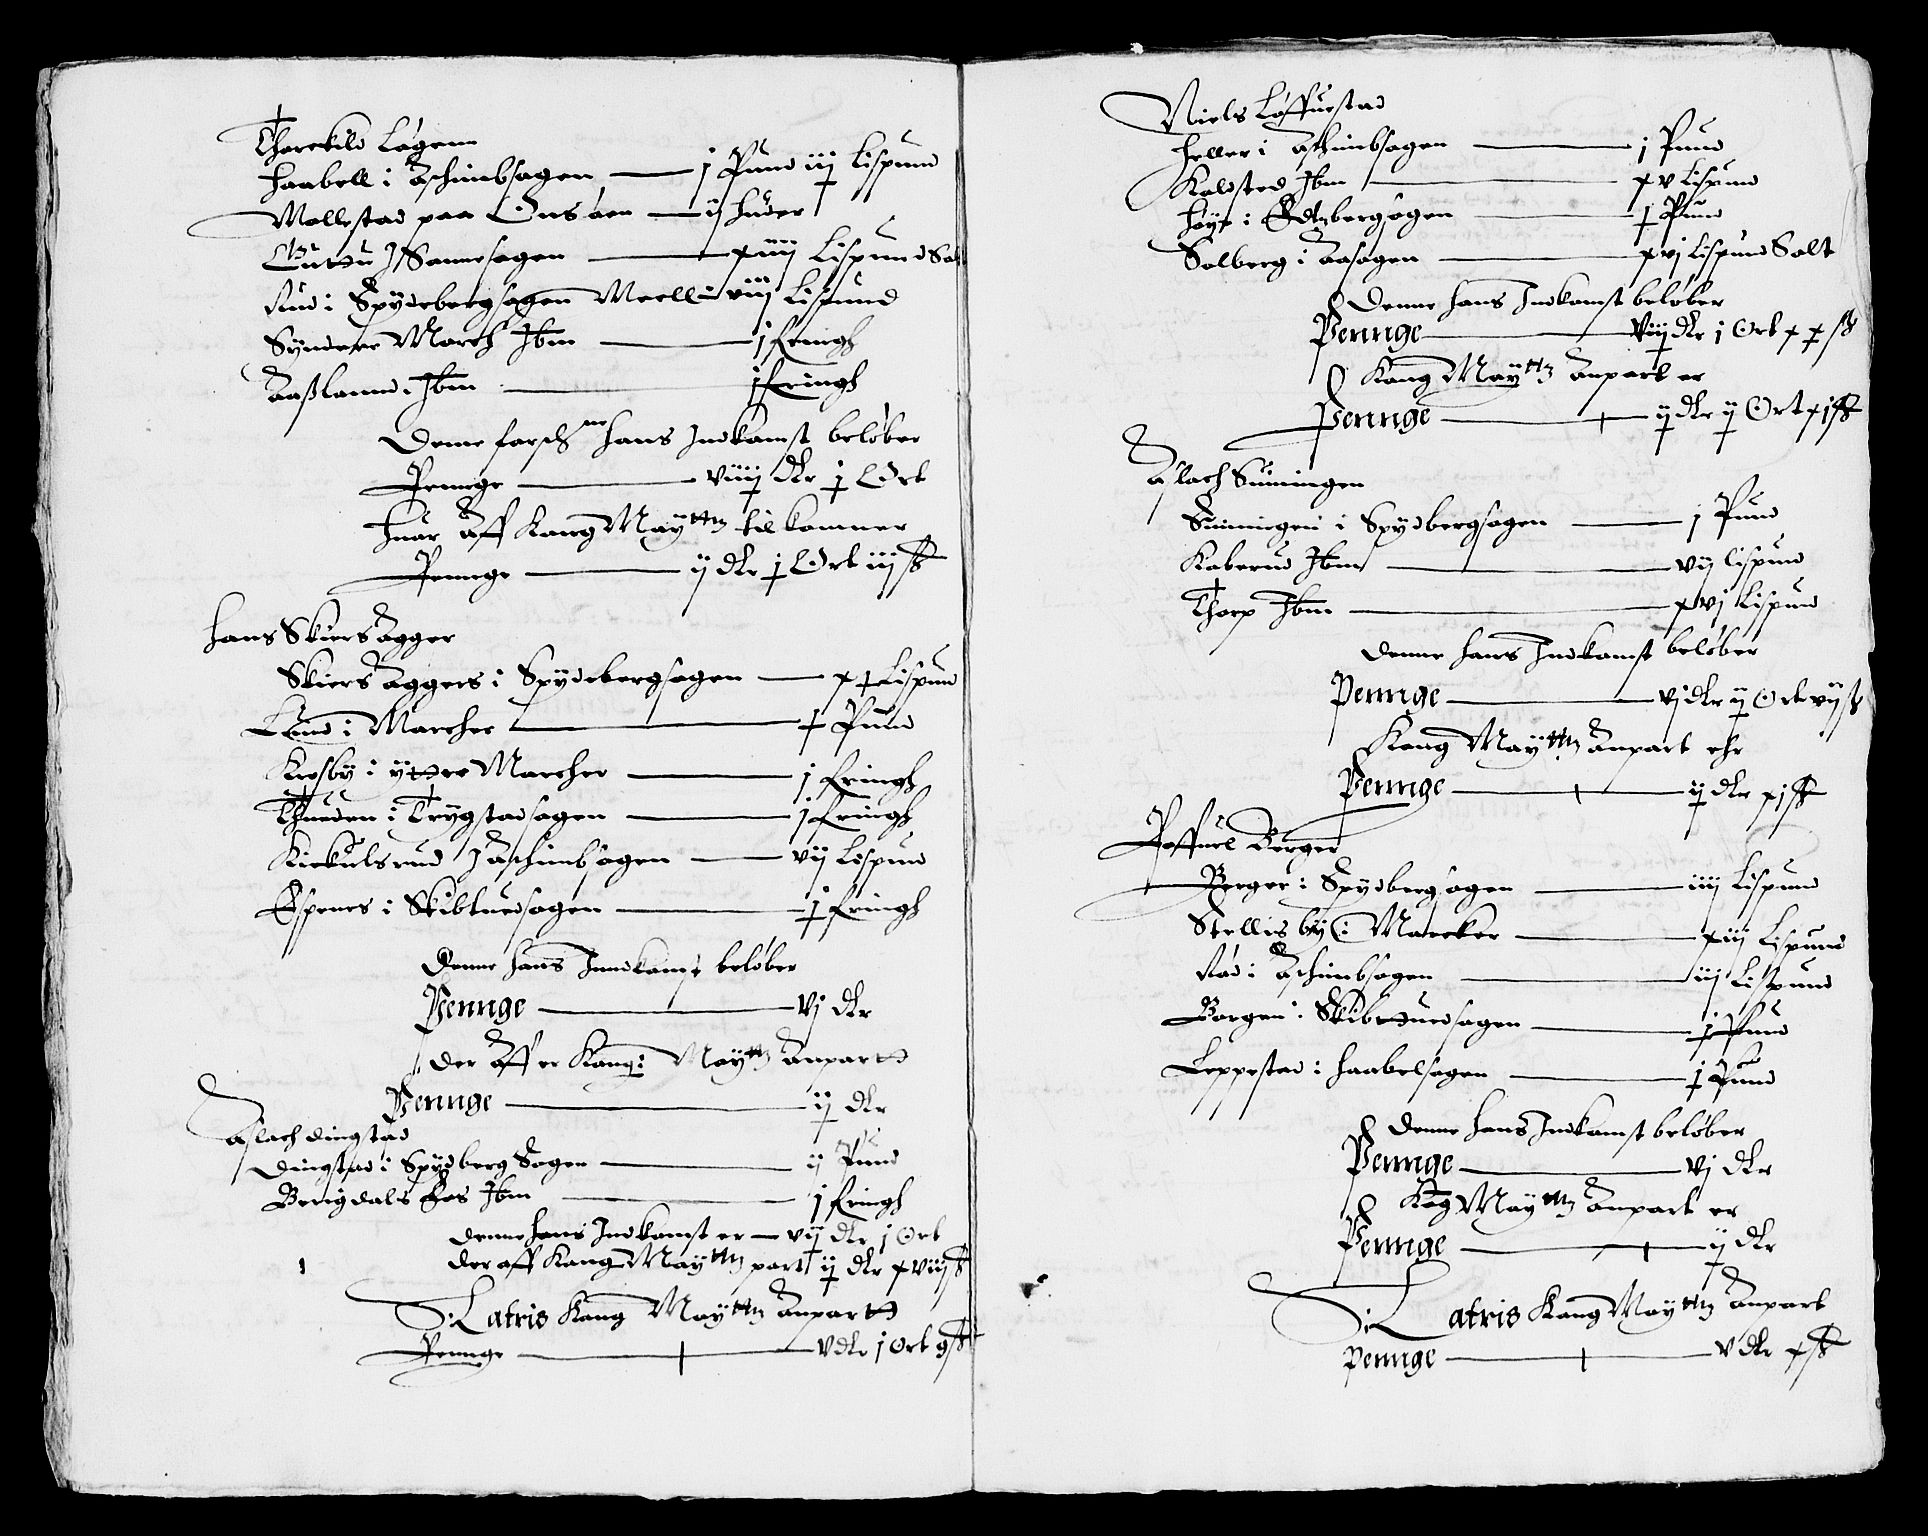 Thorekild Løgenn
Haabell i Aschimbsogen — j Pund iij Lispund
Mollestad paa Onsøen — ij Huder
Guttu J Sannesogen — xiiij Lispund Salt
Rud i Spydebergsogen Meell — viij Lispund
Syndere March Ibm — j fringh
Aaslannd Ibm — j fringh
Denne forsch: hans Indkomst beløber
Pennge — viiij dlr j Ort
Huor Aff Kong May: tilkommer
Pennge — ij dlr j Ort iij sk
Hans Skiers Agger
Skiers Aggers i Spydebergsogen — x Lispund
Lund i Marcher — Pund
Krosby i yttre Marcher — j fringh
Thueden i Trygstadsogen — j fringh
Kirkulsrud J Aschimbsogen — vij Lispund
Espenes i Skibtuedsogen — j fringh
Denne hans Inndkomst beløber
Pennge — vj dlr
Der Aff er Kong: May: Anpartt
Pennge — ij dlr
Aslach Dingstad
Dingstad i Spydberg Sogen — ij Pund
Bergdals Fos Ibm — j fringh
Denne hans Indkomst er — vij dlr j Ort
Der aff Kong May: part ij dlr xviij sk
Latris Kong May: Anpartt
Pennge — v dlr j Ort 9 sk
Niels Løffuestad
Heller i Aschimbsogen — j Pund
Kolsted Ibm — xv Lispund
Høye i Edtzbergsogen — j Pund
Solberg i Aasogen — xvj Lispund Salt
Denne hans Indkomst beløber
Pennge — viij dlr j Ort x sk
Kong May: Anpart er
Pennge — ij dlr ij Ort xj sk
Aslach Suiningen
Suiningen i Spydbergsogen — j Pund
Kaberud Ibm — vij Lispund
Thorp Ibm — xvj Lispund
Denne hans Indkomst beløber
Pennge — vj dlr ij Ort vij sk
Kong May: Anpart ehr
Pennge — ij dlr xj sk
Poffuel Berger
Berger i Spydbergsogen — iiij Lispund
Stellis by i Marcker — xiij Lispund
Rød i Aschimbsogen — iij Lispund
Borgen i Skibttuedsogen — j Pund
Leppestad i Haabelsogen — j Pund
Denne hans Indkomst beløber
Pennge — vj dlr
Kog May: Anpart er
Pennge — ij dlr
Latris Kong May: Anpart
Pennge — v dlr x sk